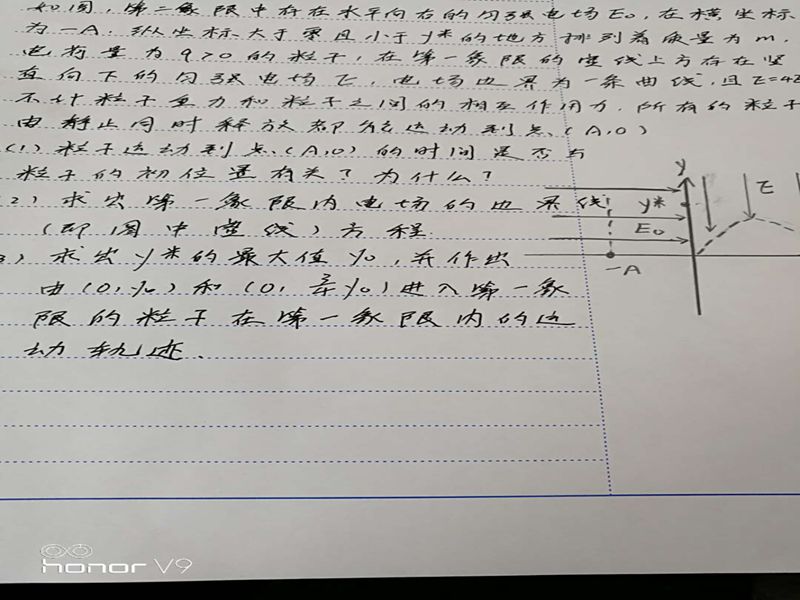 如图,第二象限中存在水平向右的匀强电场E₀,在横坐标
为-A,纵坐标大于零且小于y*的地方排列着质量为m,
电荷量为q>0的粒子,在第一象限的虚线上方存在竖
直向下的匀强电场E,电场边界为一条曲线,且E=4E
不计粒子重力和粒子之间的相互作用力,所有的粒子
由静止同时释放都能运动到点(A,0)
(1)粒子运动到点(A,0)的时间是否与
粒子的初位置有关?为什么?
2)求出第一象限内电场的边界线
(即图中虚线)方程.
3)求出y*的最大值y₀,并作出
由(0,y₀)和(0, y₀)进入第一象
限的粒子在第一象限内的运
动轨迹.
y
E
y*
E₀
-A
honor V9